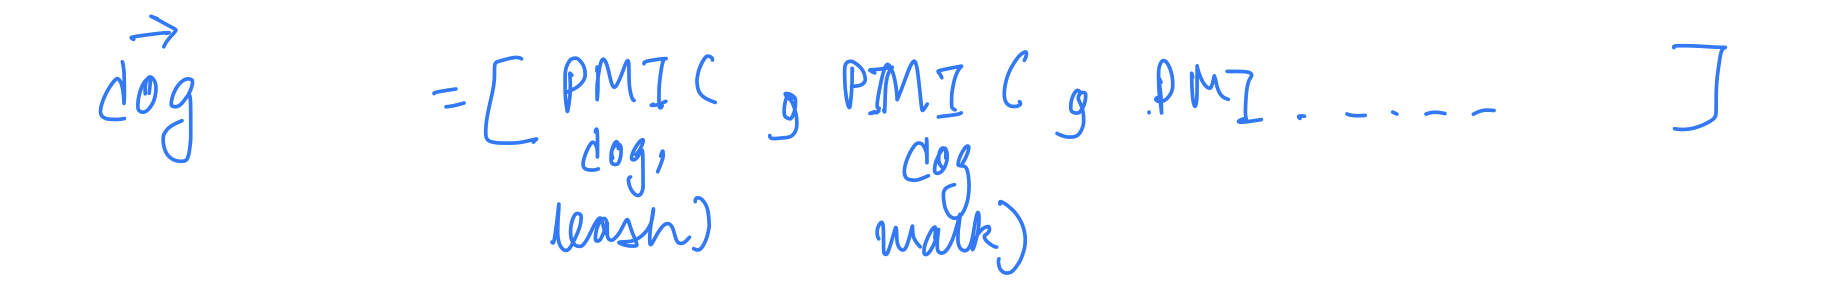 dog = [ PMI( dog, leash) , PMI( dog walk) , PMI . - . - - - ]